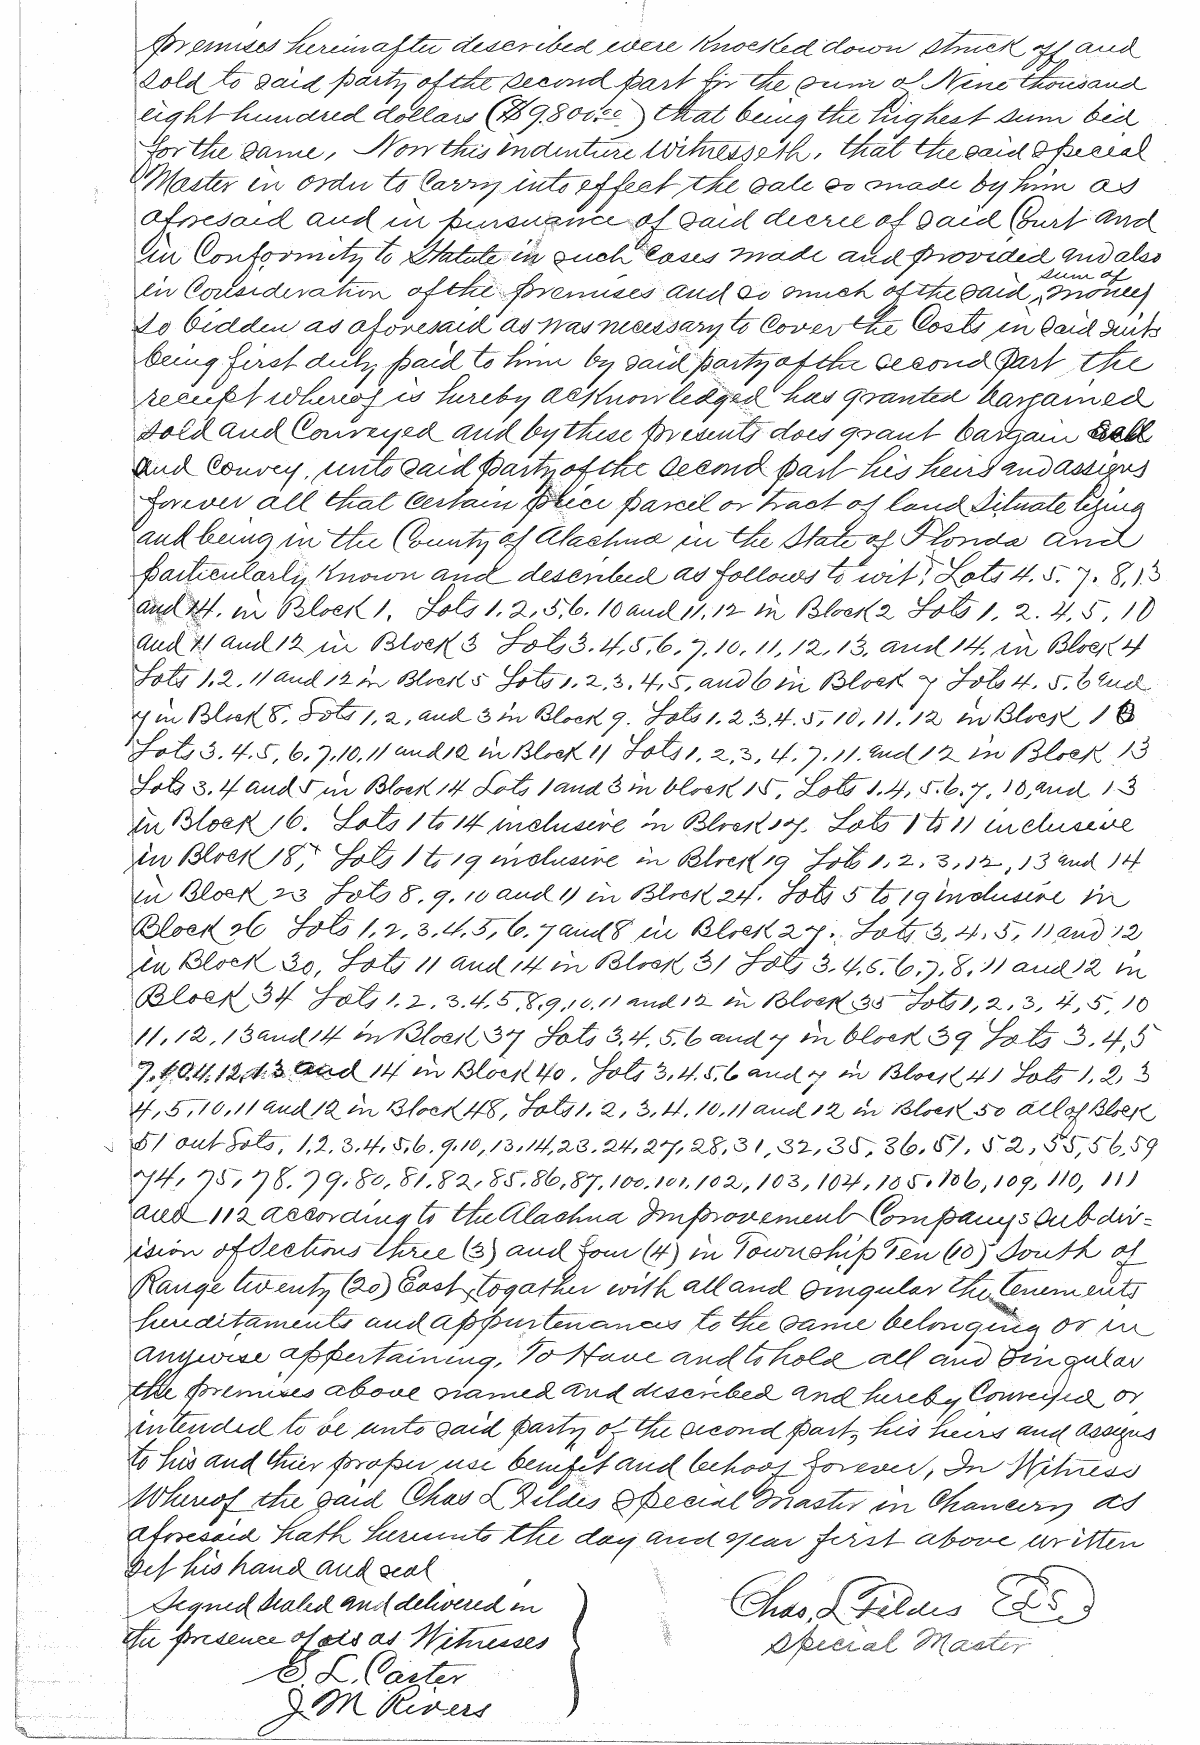 premises hereinafter described were knocked down struck off and
sold to said party of the second part for the sum of Nine thousand
eight hundred dollars ($9.800.00) that being the highest sum bid
for the same, Now this indenture Witnesseth, that the said special
Master in order to carry into effect the sale so made by him as
aforesaid and in pursuance of said decree of said Court and
in Conformity to Statute in such cases made and provided and also
in Consideration of the premises and so much of the said sum of money
so bidden as aforesaid as was necessary to cover the Costs in said suits
being first duly paid to him by said party of the second part the
receipt whereof is hereby acknowledged has granted bargained
sold and Conveyed and by these presents does grant bargain sell
and convey, unto said party of the second part his heirs and assigns
forever all that certain peice parcel or tract of land situate lying
and being in the County of Alachua in the State of Florida and
particularly known and described as follows to wit: Lots 4. 5. 7. 8, 13
and 14. in Block 1. Lots 1. 2, 5. 6. 10 and 11, 12 in Block 2 Lots 1. 2. 4, 5, 10
and 11 and 12 in Block 3 Lots 3. 4, 5, 6, 7, 10, 11, 12, 13, and 14. in Block 4
Lots 1. 2. 11 and 12 in Block 5 Lots 1. 2, 3. 4, 5, and 6 in Block 7 Lots 4. 5. 6 and
7 in Block 8. Lots 1, 2, and 3 in Block 9. Lots 1. 2 3, 4. 5, 10, 11. 12 in Block 10
Lots 3. 4. 5, 6, 7, 10, 11 and 12 in Block 11 Lots 1. 2, 3, 4. 7. 11. and 12 in Block 13
Lots 3. 4 and 5 in Block 14 Lots 1 and 3 in block 15. Lots 1. 4, 5. 6. 7, 10, and 13
in Block 16. Lots 1 to 14 inclusive in Block 17. Lots 1 to 11 inclusive
in Block 18, Lots 1 to 19 inclusive in Block 19 Lots 1, 2. 3, 12, 13 and 14
in Block 23 Lots 8. 9. 10 and 11 in Block 24. Lots 5 to 19 inclusive in
Block 26 Lots 1, 2, 3, 4. 5, 6. 7 and 8 in Block 27. Lots 3, 4, 5, 11 and 12
in Block 30, Lots 11 and 14 in Block 31 Lots 3. 4, 5. 6. 7, 8, 11 and 12 in
Block 34 Lots 1. 2. 3. 4. 5, 8, 9, 10, 11 and 12 in Block 35 Lots 1, 2, 3, 4, 5, 10
11, 12, 13 and 14 in Block 37 Lots 3, 4. 5. 6 and 7 in block 39 Lots 3. 4, 5
7. 10. 11. 12, 13 and 14 in Block 40. Lots 3, 4. 5, 6 and 7 in Block 41 Lots 1. 2, 3
4, 5, 10, 11 and 12 in Block 48, Lots 1, 2, 3, 4, 10, 11 and 12 in Block 50 all of Block
51 out Lots, 1, 2, 3. 4, 5, 6. 9, 10, 13, 14, 23. 24, 27, 28, 31, 32, 35, 36. 51. 52, 55, 56, 59
74, 75, 78. 79. 80, 81. 82, 85, 86, 87, 100. 101, 102, 103, 104, 105. 106, 109, 110, 111
and 112 according to the Alachua Improvement Company's subdiv=
ision of Sections three (3) and four (4) in Township Ten (10) South of
Range twenty (20) East, together with all and singular the tenements
hereditaments and appurtenances to the same belonging or in
anywise appertaining. To Have and to hold all and singular
the premises above named and described and hereby Conveyed or
intended to be unto said party of the second part, his heirs and assigns
to his and thier proper use benefit and behoof forever, In Witness
Whereof the said Chas L Fildes special Master in Chancery as
aforesaid hath hereunto the day and year first above written
set his hand and seal
Signed sealed and delivered in
the presence of us as Witnesses
Chas, L Fildes L.S.
Special Master
E. L. Carter
J. M Rivers